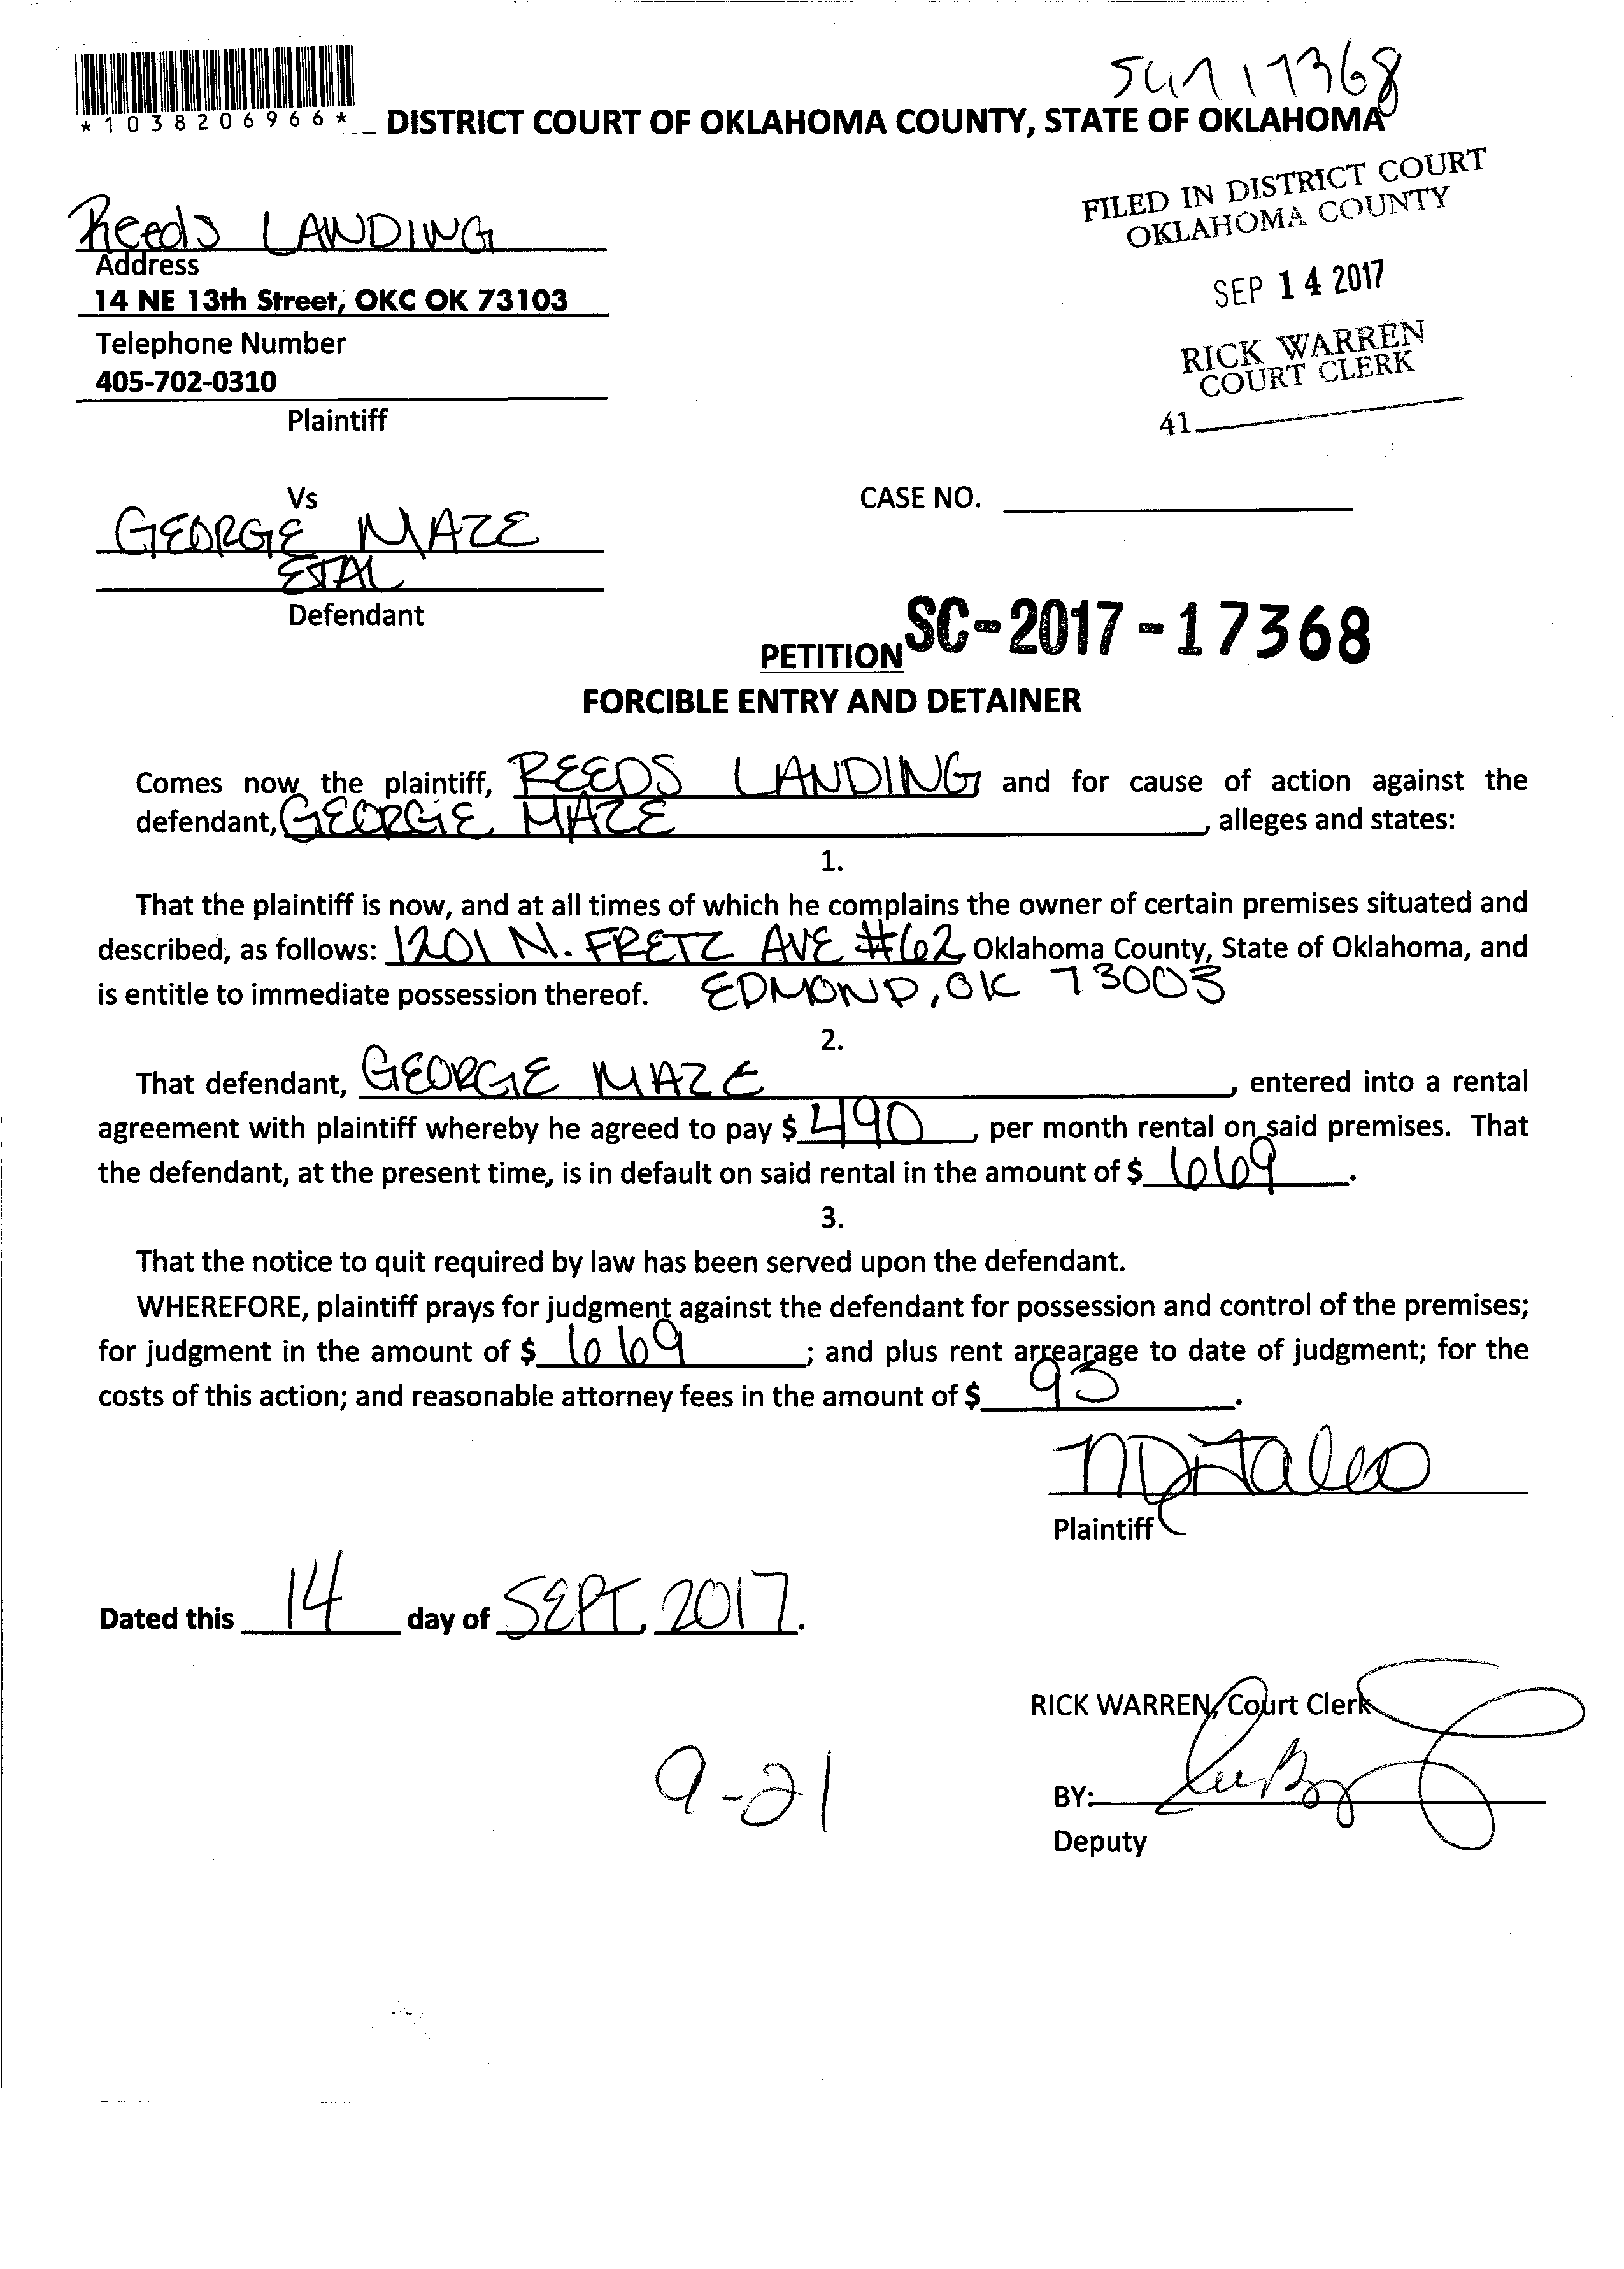 SC17 17368
*1038206966*
DISTRICT COURT OF OKLAHOMA COUNTY, STATE OF OKLAHOMA
FILED IN DISTRICT COURT
OKLAHOMA COUNTY
SEP 14 2017
RICK WARREN
COURT CLERK
41
Reeds LANDING
Address
14 NE 13th Street, OKC OK 73103
Telephone Number
405-702-0310
Plaintiff
Vs
CASE NO.
GEORGE MAZE
ETAL
Defendant
SC-2017-17368
PETITION
FORCIBLE ENTRY AND DETAINER
Comes now the plaintiff, REEDS LANDING and for cause of action against the
defendant, GEORGE MAZE, alleges and states:
1.
That the plaintiff is now, and at all times of which he complains the owner of certain premises situated and
described, as follows: 1201 N. FRETZ AVE #62 Oklahoma County, State of Oklahoma, and
is entitle to immediate possession thereof. EDMOND, OK 73003
2.
That defendant, GEORGE MAZE, entered into a rental
agreement with plaintiff whereby he agreed to pay $ 490, per month rental on said premises. That
the defendant, at the present time, is in default on said rental in the amount of $ 669.
3.
That the notice to quit required by law has been served upon the defendant.
WHEREFORE, plaintiff prays for judgment against the defendant for possession and control of the premises;
for judgment in the amount of $ 669; and plus rent arrearage to date of judgment; for the
costs of this action; and reasonable attorney fees in the amount of $ 93.
Plaintiff
Dated this 14 day of SEPT, 2017.
RICK WARREN, Court Clerk
9-21
BY:
Deputy